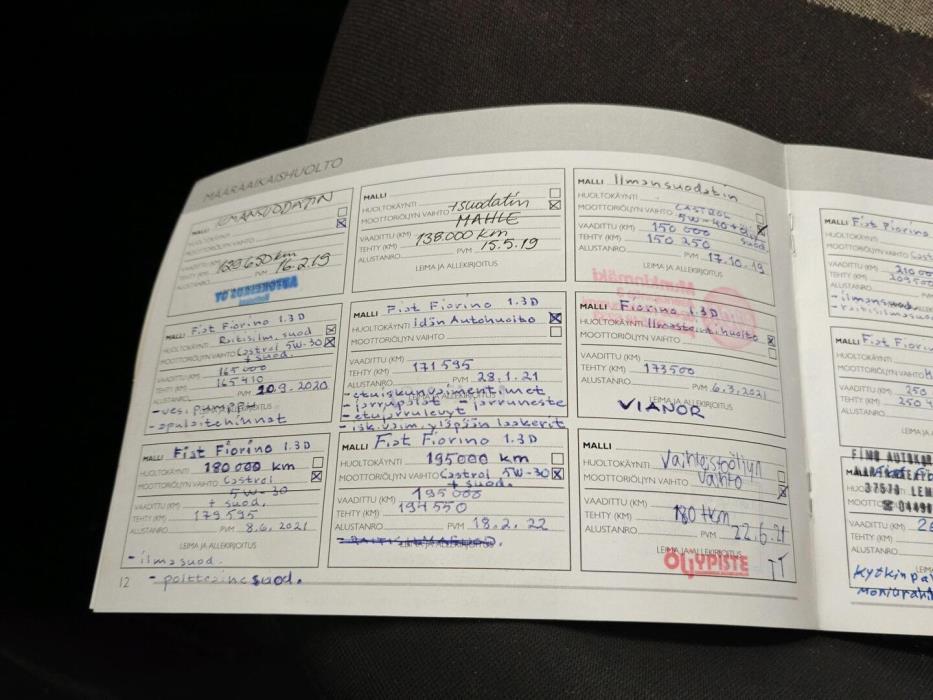 MÄÄRÄAIKAISHUOLTO
ILMANSUODATIN
MALLI
HUOLTOKÄYNTI
MOOTTORIÖLJYN VAIHTO
VAADITTU (KM)
TEHTY (KM)
ALUSTANRO
PVM 16.2.19
+suodatin
MALLI
HUOLTOKÄYNTI
MOOTTORIÖLJYN VAIHTO MAHLE
VAADITTU (KM)
TEHTY (KM) 138.000 km
ALUSTANRO
PVM 15.5.19
LEIMA JA ALLEKIRJOITUS
MALLI Ilmansuodatin
HUOLTOKÄYNTI
MOOTTORIÖLJYN VAIHTO CASTROL
5W-40 + öljy
suod.
VAADITTU (KM) 150 000
TEHTY (KM) 150 250
ALUSTANRO
PVM 17.10.19
LEIMA JA ALLEKIRJOITUS
MALLI Fiat Fiorino 1.3D
HUOLTOKÄYNTI Raitisilm. suod
MOOTTORIÖLJYN VAIHTO Castrol 5W-30
+ suod.
VAADITTU (KM) 165000
TEHTY (KM) 165410
ALUSTANRO
PVM 10.9.2020
- ves.pumppu
- apulaitehihnat
MALLI Fiat Fiorino 1.3D
HUOLTOKÄYNTI Idän Autohuolto
MOOTTORIÖLJYN VAIHTO
VAADITTU (KM)
TEHTY (KM) 171595
ALUSTANRO
PVM 28.1.21
- etuiskunvaimentimet
- jarrupalat - jarruneste
- etujarrulevyt
- isk.vaim. yläpään laakerit
MALLI Fiorino 1.3D
HUOLTOKÄYNTI Ilmastointihuolto
MOOTTORIÖLJYN VAIHTO
VAADITTU (KM)
TEHTY (KM) 173500
ALUSTANRO
PVM 6.3.2021
LEIMA JA ALLEKIRJOITUS
VIANOR
MALLI Fiat Fiorino 1.3D
HUOLTOKÄYNTI 180000 km
MOOTTORIÖLJYN VAIHTO Castrol
5W-30
+ suod.
VAADITTU (KM)
TEHTY (KM) 179595
ALUSTANRO
PVM 8.6.2021
LEIMA JA ALLEKIRJOITUS
- ilmasuod.
- polttoainesuod.
MALLI Fiat Fiorino 1.3D
HUOLTOKÄYNTI 195000 km
MOOTTORIÖLJYN VAIHTO Castrol 5W-30
+ suod.
VAADITTU (KM) 195000
TEHTY (KM) 194550
ALUSTANRO
PVM 18.2.22
MALLI
HUOLTOKÄYNTI Vaihteistoöljyn
MOOTTORIÖLJYN VAIHTO vaihto
VAADITTU (KM)
TEHTY (KM) 180tkm
ALUSTANRO
PVM 22.6.21
LEIMA JA ALLEKIRJOITUS
ÖLJYPISTE
12
MALLI Fiat Fiorino
VAADITTU (KM) 210 0
TEHTY (KM)
ALUSTANRO
- ilmansuod
- raitisilmasuo
MALLI Fiat Fiorin
HUOLTOKÄYNTI
MOOTTORIÖLJYN VAIHTO
VAADITTU (KM) 250
TEHTY (KM) 250
ALUSTANRO
37570 LEM
VAADITTU (KM)
TEHTY (KM)
ALUSTANRO